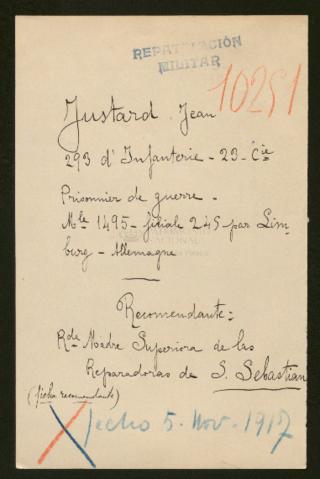 REPATRIACIÓN
MILITAR
10251
Justard. Jean
293 d'Infanterie - 23 - Cie
Prisonnier de guerre -
Mle 1495 - filiale 245 par Lim=
burg - Allemagne
Recomendante:
Rde Madre Superiora de las
Reparadoras de S. Sebastian
(ficha recomendante)
fecho 5. Nov. 1917